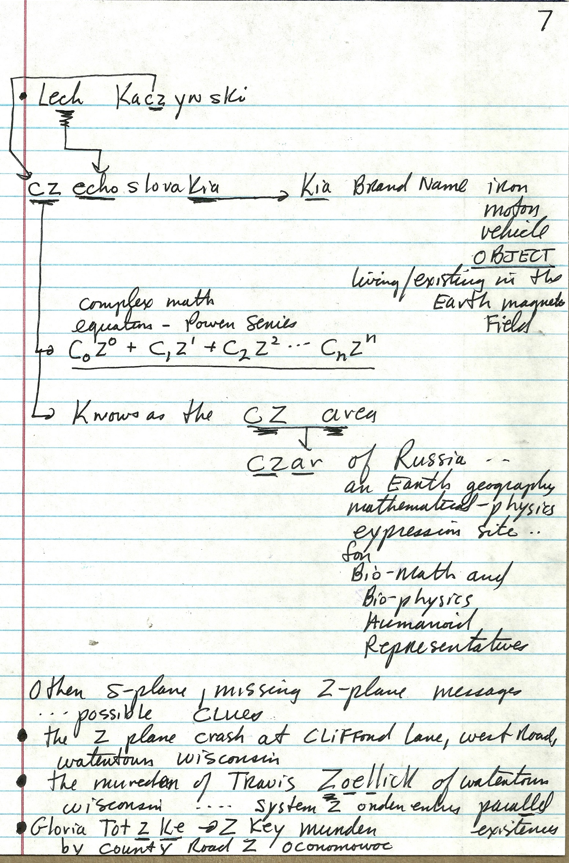 7
• Lech Kaczynski
cz echo slovakia → Kia Brand Name iron
motor
vehicle
OBJECT
living/existing in the
Earth magnetic
Field
complex math
equation - Power Series
C₀Z⁰ + C₁Z¹ + C₂Z² ... CₙZⁿ
Knows as the CZ area
Czar of Russia ..
an Earth geography
mathematical-physics
expression site ..
for
Bio-Math and
Bio-physics
Humanoid
Representatives
Other S-plane, missing Z-plane messages
... possible clues
• the Z plane crash at Clifford Lane, west Road,
watertown wisconsin
• the murder of Travis Zoellick of watertown
wisconsin .... system Z order enters parallel
existences
• Gloria Totzke → Z Key murder
by county Road Z oconomowoc